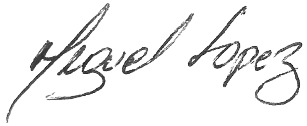 Miguel Lopez